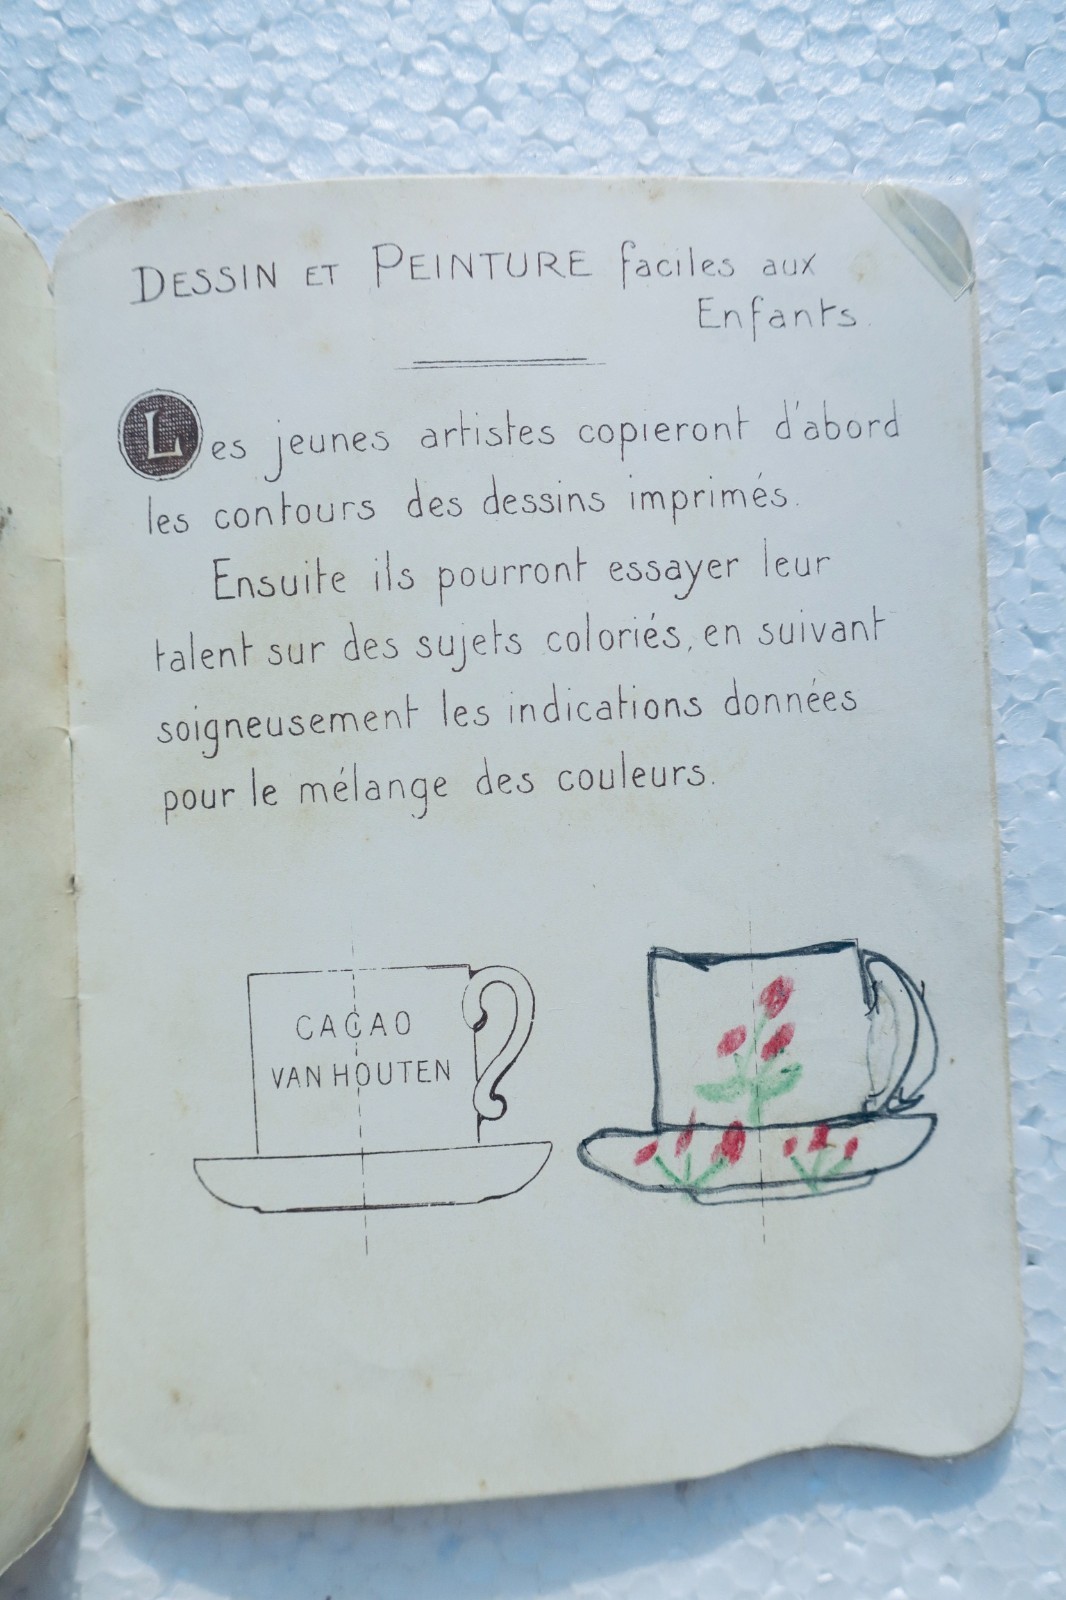 DESSIN ET PEINTURE faciles aux
Enfants.
Les jeunes artistes copieront d'abord
les contours des dessins imprimés.
Ensuite ils pourront essayer leur
talent sur des sujets coloriés, en suivant
soigneusement les indications données
pour le mélange des couleurs.
CACAO
VAN HOUTEN